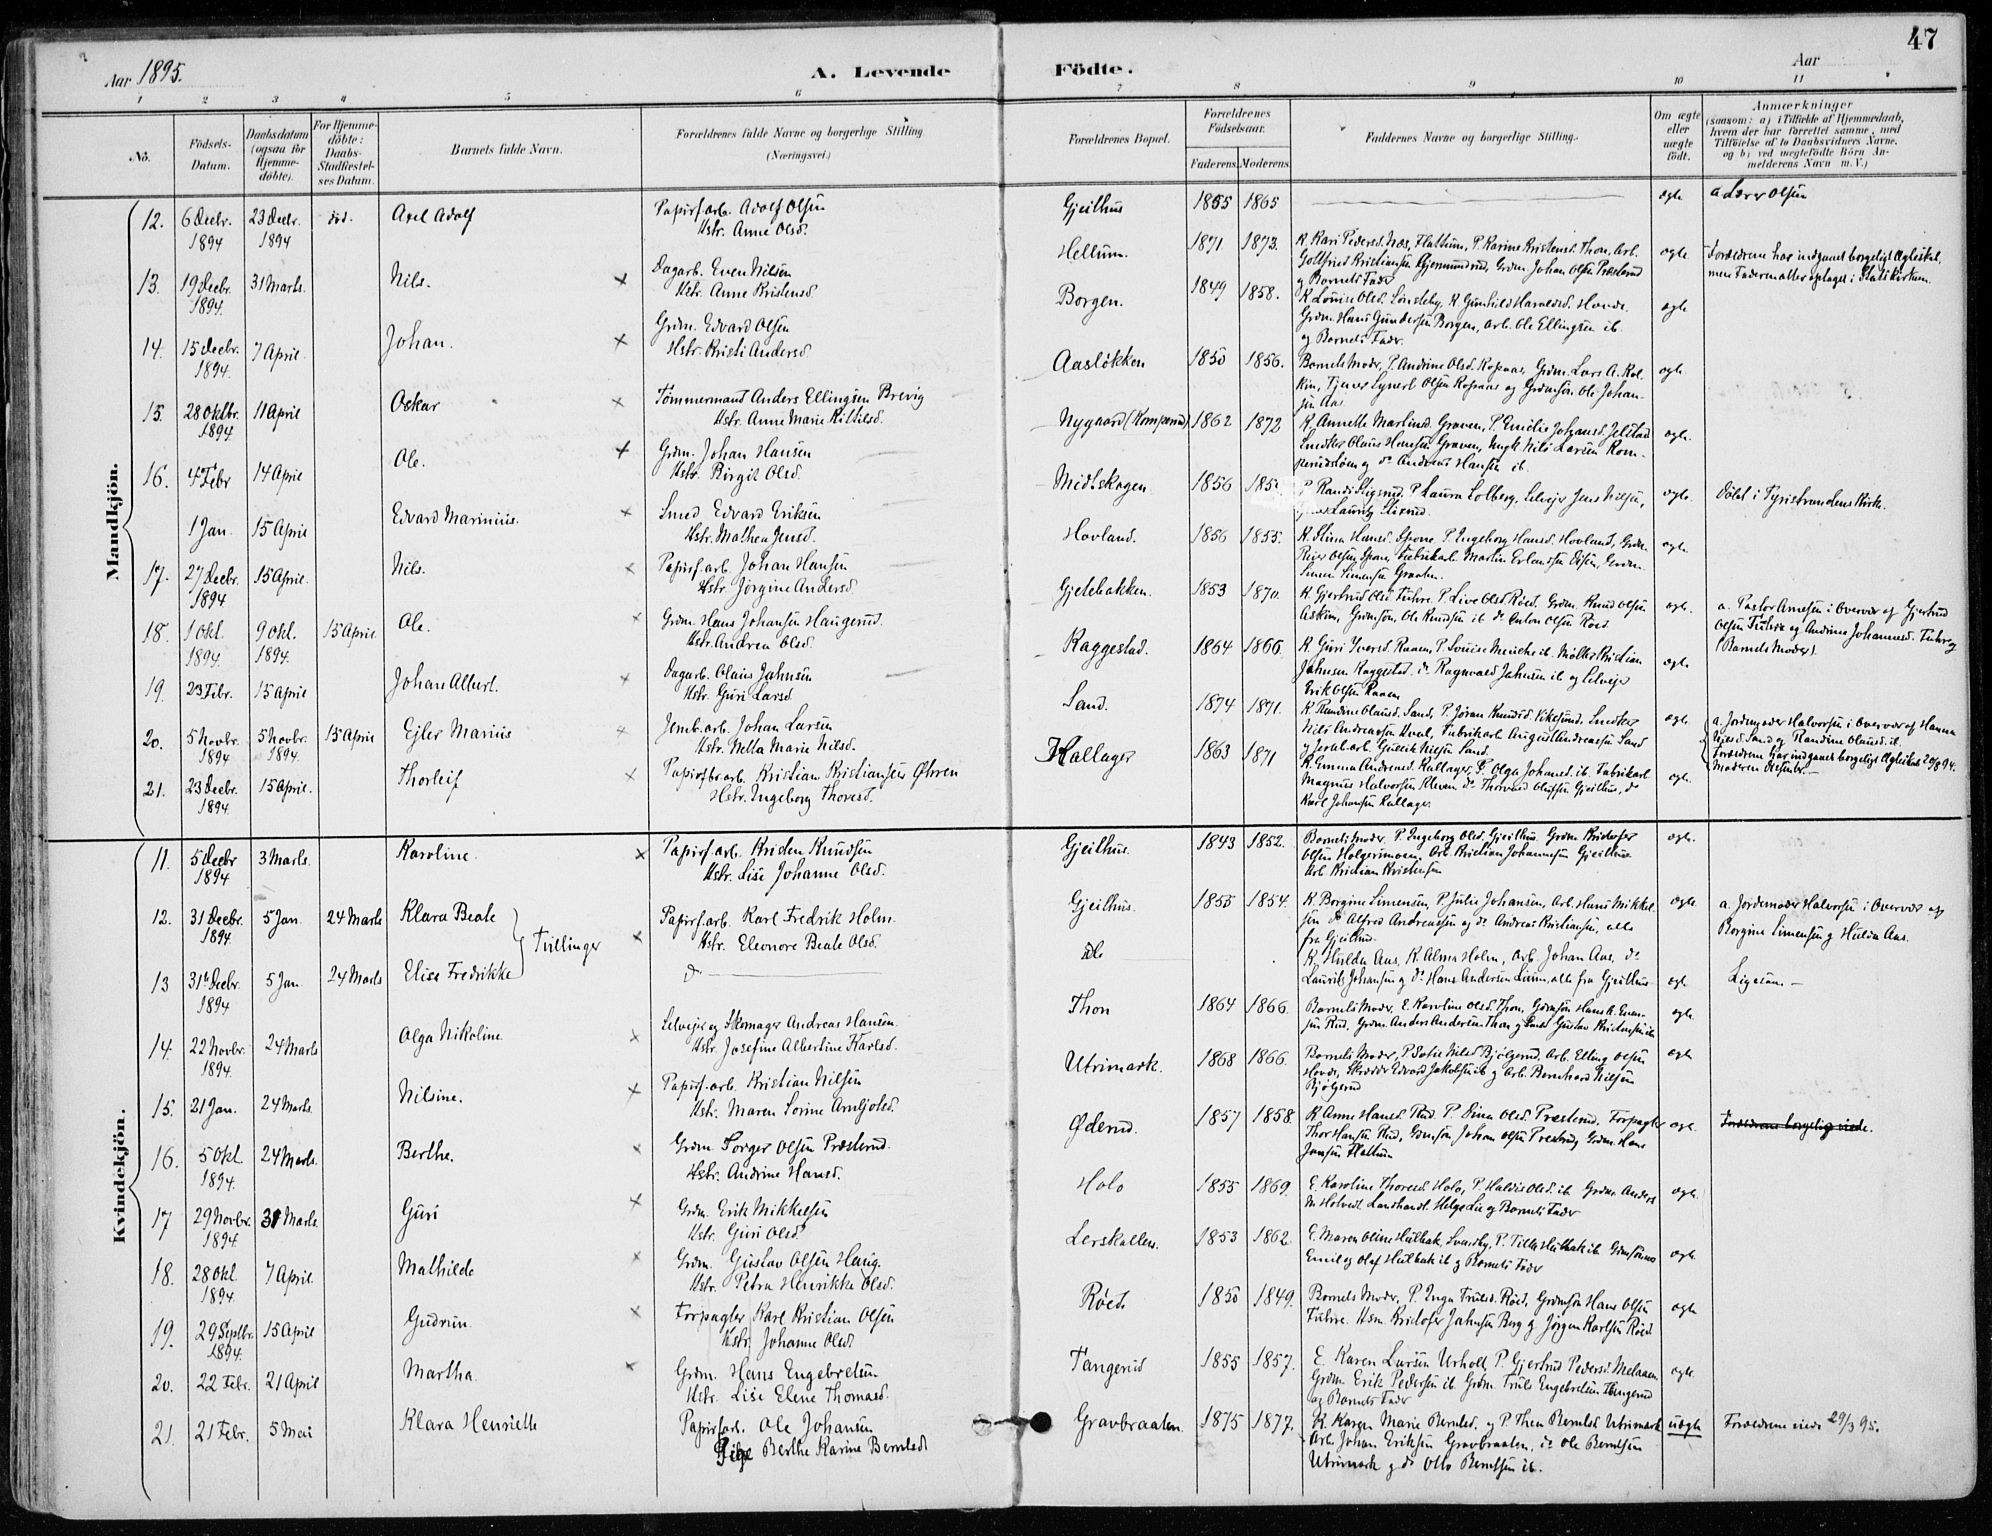 47
Aar 1895.
A. Levende Födte.
Aar
1 2 3 4 5 6 7 8 9 10 11
No.
Födsels-Datum.
Daabsdatum (ogsaa for Hjemme-döbte).
For Hjemme-döbte: Daabs-Stadfæstel-ses Datum.
Barnets fulde Navn.
Forældrenes fulde Navne og borgerlige Stilling (Næringsvei.)
Forældrenes Bopæl.
Forældrenes Födselsaar.
Faderens. Moderens.
Faddernes Navne og borgerlige Stilling.
Om ægte eller uægte födt.
Anmærkninger
(saasom: a) i Tilfælde af Hjemmedaab,
hvem der har forrettet samme, med
Tilföielse af to Daabsvidners Navne,
og b) ved uægtefödte Börn An-
melderens Navn m. V.)
Mandkjön.
12. 6 Decbr. 1894 23 Decbr. 1894 död. Axel Adolf
Papirf.arb. Adolf Olsen
Hstr. Anne Olsd.
Gjeithus 1855 1865 ægte a Lærer Olsen
13. 19 Decbr. 1894. 31 Marts. Nils. ×
Dagarb. Even Nilsen
Hstr. Anne Kristensd.
Hellum. 1871 1873.
K. Kari Pedersd. Næs, Flattum, P. Karine Kristensd. Thon, Arb.
Gottfried Kristiansen Gjermundrud, Grdm. Johan Olsen Præsterud
og Barnets Fader
ægte Forældrene har indgaaet borgeligt Ægteskab,
men Faderen atter optaget i Statskirken.
14. 15 Decbr. 1894. 7 April. Johan. ×
Grdm. Edvard Olsen
Hstr. Kristi Andersd.
Borgen. 1849 1858.
K. Louise Olsd. Sönsteby, K. Gunhild Haraldsd. Hovde.
Grdm. Hans Gundersen Borgen, Arb. Ole Ellingsen ib.
og Barnets Fader.
ægte
15. 28 Oktbr. 1894 11 April Oskar ×
Tömmermand Anders Ellingsen Brevig
Hstr. Anne Marie Kittilsd.
Aaslökken 1850 1856.
Barnets Moder, P. Andine Olsd. Kopaas, Grdm. Lars A. Kol-
kin, Tjener Synert Olsen Kopaas og Grdmsön Ole Johan-
sen Aas
ægte
16. 4 Febr 14 April Ole. ×
Grdm. Johan Hansen
Hstr. Birgit Olsd.
Nygaard (Komperud) 1862 1872
K. Annette Martinsd. Graven, P. Emilie Johansd. Jelstad
Smed Olaus Hansen Graven, Ungk. Nils Larsen Kom-
perudsløen og do Andreas Hansen ib.
ægte.
1 Jan. 15 April Edvard Marinius. ×
Smed Edvard Eriksen
Hstr. Mathea Jensd.
Midtskogen. 1856
P. Laura Solberg, Selveier Jens Nilsen,
ægte. Döbt i Tyristrandens Kirke.
17. 27 Decbr. 1894 15 April. Nils. ×
Papirf.arb. Johan Hansen
Hstr. Jörgine Andersd.
Hovland. 1856 1855.
K. Stina Hansd. Spone P. Engeborg Hansd. Hovland, Grdm.
Reier Olsen Spone, Fabrikarb. Martin Erlandsen Disen, Grdm.
Simen Simensen Graaten.
ægte.
18. 1 Okt. 1894. 9 Okt. 1894. 15 April Ole. ×
Grdm. Hans Johansen Haugerud.
Hstr. Andrea Olsd.
Gjetebakken. 1853 1870.
K. Gjertrud Olsd Fuhre. P. Live Olsd Röed. Grdm. Knud Olsen
Askim, Grdmsön. Ole Knudsen ib do Anton Olsen Röed
ægte. a. Pastor Arnesen i Overvær af Gjertrud
Olsen Fuhre og Andrine Johannesd. Fuhre og
(Barnets Moder).
19. 23 Febr. 15 April Johan Albert. ×
Dagarb. Olaus Jahnsen
Hstr. Guri Larsd
Raggestad. 1864 1866.
K. Guri Iversd. Raaen, P. Louise Meniche ib. Møller Kristian
Jahnsen Raggestad. do Ragnvald Jahnsen ib og Selveier
Erik Olsen Raaen
ægte.
20. 5 Novbr. 1894 5 Novbr. 1894. 15 April Ejler Marius ×
Jernb.arb. Johan Larsen
Hstr. Netta Marie Nilsd.
Sand. 1874 1871.
K. Randine Olausd. Sand, P. Jöran Knudsd. Vikesund. Smed
Nils Andreassen Hval, Fabrikarb. August Andreassen Sand
og Jernb.arb. Gullik Nilsen Sand.
ægte. a. Jordmoder Halvorsen i Overvær af Hanna
Nilsd. Sand og Randine Olausd. ib.
Forældrene har indgaaet borgeligt Ægteskab 20/8 94.
Moderen dissenter.
21. 23 Decbr. 1894. 15 April. Thorleif ×
Papirfbr.arb. Kristian Kristiansen Øhren
Hstr. Ingeborg Thoresd.
Kallager 1863 1871
K. Emma Andersd. Kallager, P. Olga Johansd. ib. Fabrikarb.
Magnus Halvorsen Kleven do Thorvard Olufsen Gjeithus, do
Karl Johansen Kallager.
ægte.
Kvindekjön.
11. 5 Decbr 1894 3 Marts. Karoline. ×
Papirf.arb. Kristen Knudsen
Hstr. Lise Johanne Olsd.
Gjeithus. 1843 1852.
Barnets Moder P. Ingeborg Olsd. Gjeithus Grdm Kristofer
Olsen Holgerimoen. Arb. Kristian Johannesen Gjeithus
Arb. Kristian Kristensen
ægte.
12. 31 Decbr. 1894. 5 Jan. 24 Marts Klara Beate } Tvillinger ×
Papirf.arb. Karl Fredrik Holm.
Hstr. Eleonore Beate Olsd.
Gjeithus. 1855 1854.
K. Borgine Simensen, P. Julie Johansen, Arb. Hans Mikkel-
sen do Alfred Andreassen og do Andreas Kristiansen, alle
fra Gjeithus.
ægte. a. Jordmoder Halvorsen i Overvær af
Borgine Simensen og Hulda Aas.
13 31te Decbr. 1894 5 Jan. 24 Marts Elise Fredrikke
do
K. Hulda Aas, K. Alma Holm, Arb. Johan Aas, do
Laurits Johansen og do Hans Andersen Lium, alle fra Gjeithus
ægte Ligesaa.
14. 22 Novbr. 1894. 24 Marts Olga Nikoline ×
Selveier og Skomager Andreas Hansen.
Hstr. Josefine Albertine Karlsd.
Thon 1864 1866.
Barnets Moder, E. Karoline Olsd. Thon, Grdmsön Hans A. Evan-
sen Rud, Grdm. Anders Andersen Thon og Smed Gustav Kristensen ib
ægte.
15. 21 Jan. 24 Marts. Nilsine. ×
Papirf.arb. Kristian Nilsen
Hstr. Maren Sorine Arntjotsd.
Utrimark. 1868 1866.
Barnets Moder, P. Sofie Nilsd Bjölgerud, Arb. Elling Olsen
Hovde, Skrædder Edvard Jakobsen ib og Arb. Bernhard Nilsen
Bjölgerud
ægte
16. 5 Okt. 1894. 24 Marts. Berthe. ×
Grdm Torger Olsen Præsterud.
Hstr. Andrine Hansd.
Øderud. 1857 1858.
K. Anne Hansd. Rud. P. Dina Olsd. Præsterud. Forpagter
Thor Hansen Rud, Grdmsön Johan Olsen Præsterud, Grdm. Hans
Jansen Flattum
ægte. Forældrene borgelig viede.
17 29 Novbr. 1894. 31 Marts. Guri ×
Grdm. Erik Mikkelsen
Hstr. Guri Olsd.
Holo 1855 1869.
E. Karoline Thoresd. Holo, P. Haldis Olsd. ib. Grdm. Anders
M Holvedt Landhandl. Helge Lie og Barnets Fader
ægte.
18. 28 Okt. 1894. 7 April. Mathilde ×
Grdm. Gustav Olsen Haug.
Hstr. Petra Henrikke Olsd.
Lerskallen. 1853 1862.
E. Maren Oline Hulbak, Svarsby, P. Tilla Hulbak ib. Grdmsönner
Emil og Olaf Hulbak ib og Barnets Fader
ægte.
19. 29 Septbr. 1894. 15 April Gudrun. ×
Forpagter Karl Kristian Olsen
Hstr. Johanne Olsd.
Röed. 1850 1849.
Barnets Moder, P. Inga Trulsd. Röed, Grdmsön Hans Olsen
Fuhre. Hsm. Kristofer Jahnsen Berg og Jörgen Karlsen Röed.
ægte.
20. 22 Febr. 21 April Martha. ×
Grdm. Hans Engebretsen
Hstr. Lise Elene Thomasd.
Tangerud 1855 1857.
E. Karen Larsen Urholt, P. Gjertrud Pedersd. Melaaen
Grdm. Erik Pedersen ib. Grdm. Truls Engebretsen Tangerud
og Barnets Fader
ægte.
21. 21 Febr. 5 Mai Klara Henriette
Papirf.arb. Ole Johansen
Pige Berthe Karine Berntsd
Gravbraaten. 1875 1877.
K. Karen Marie Berntsd. og P. Thea Berntsd. Utrimark
Arb. Johan Eriksen Gravbraaten, do Ole Berntsen
Utrimark og do Otto Berntsen ib.
uægte Forældrene viede 29/3 95.